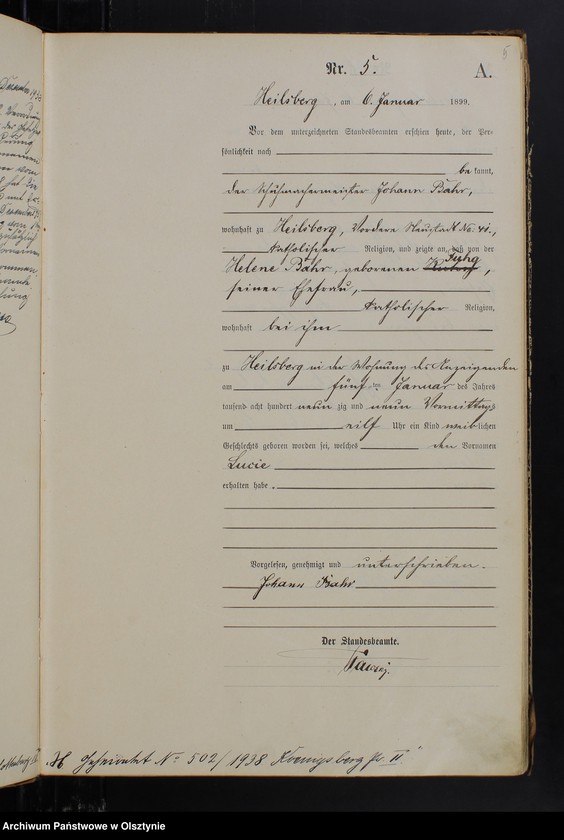 5
Nr. 5. A.
Heilsberg, am 6. Januar 1899.
Vor dem unterzeichneten Standesbeamten erschien heute, der Per-
sönlichkeit nach
bekannt,
der Schuhmachermeister Johann Bahr,
wohnhaft zu Heilsberg, Vordere Neustadt No. 41.,
katholischer Religion, und zeigte an, daß von der
Fuhg
Helene Bahr, geborenen ,
seiner Ehefrau,
katholischer Religion,
wohnhaft bei ihm
zu Heilsberg in der Wohnung des Anzeigenden
am fünften Januar des Jahres
tausend acht hundert neunzig und neun Vormittags
um eilf Uhr ein Kind weiblichen
Geschlechts geboren worden sei, welches den Vornamen
Lucie
erhalten habe.
Vorgelesen, genehmigt und unterschrieben.
Johann Bahr
Der Standesbeamte.
H Geheiratet No 502/1938 Koenigsberg Pr. II
Archiwum Państwowe w Olsztynie